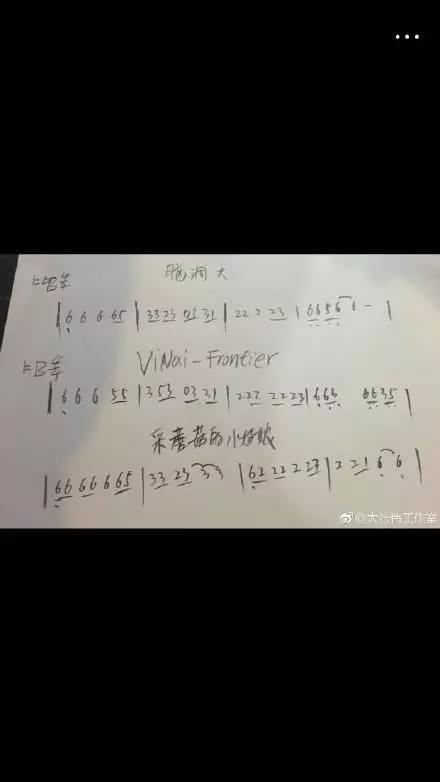 脑洞大
| 6 6 6 65 | 3323 0531 | 22 2 23 | 6656 6 - |
ViNai-Frontier
| 6 6 6 55 | 353 0331 | 222 2223 | 666 6635 |
采蘑菇的小姑娘
| 66 66 6 65 | 33 23 3 3 | 62 22 2 23 | 2 21 6 6 |
@大张伟工作室